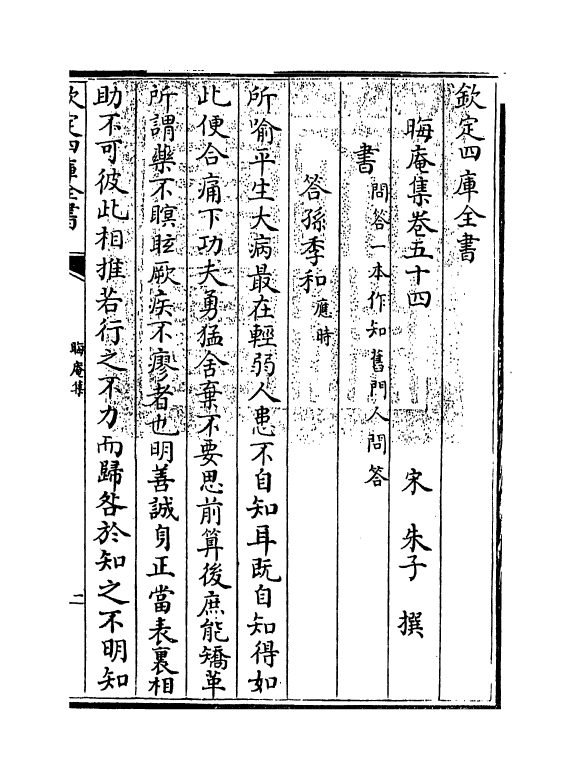 欽定四庫全書
晦庵集卷五十四
宋 朱子 撰
書問答一本作知舊門人問答
答孫季和應時
所喻平生大病最在輕弱人患不自知耳既自知得如
此便合痛下功夫勇猛舍棄不要思前算後庶能矯革
所謂藥不瞑眩厥疾不瘳者也明善誠身正當表裏相
助不可彼此相推若行之不力而歸咎於知之不明知
欽定四庫全書
晦庵集